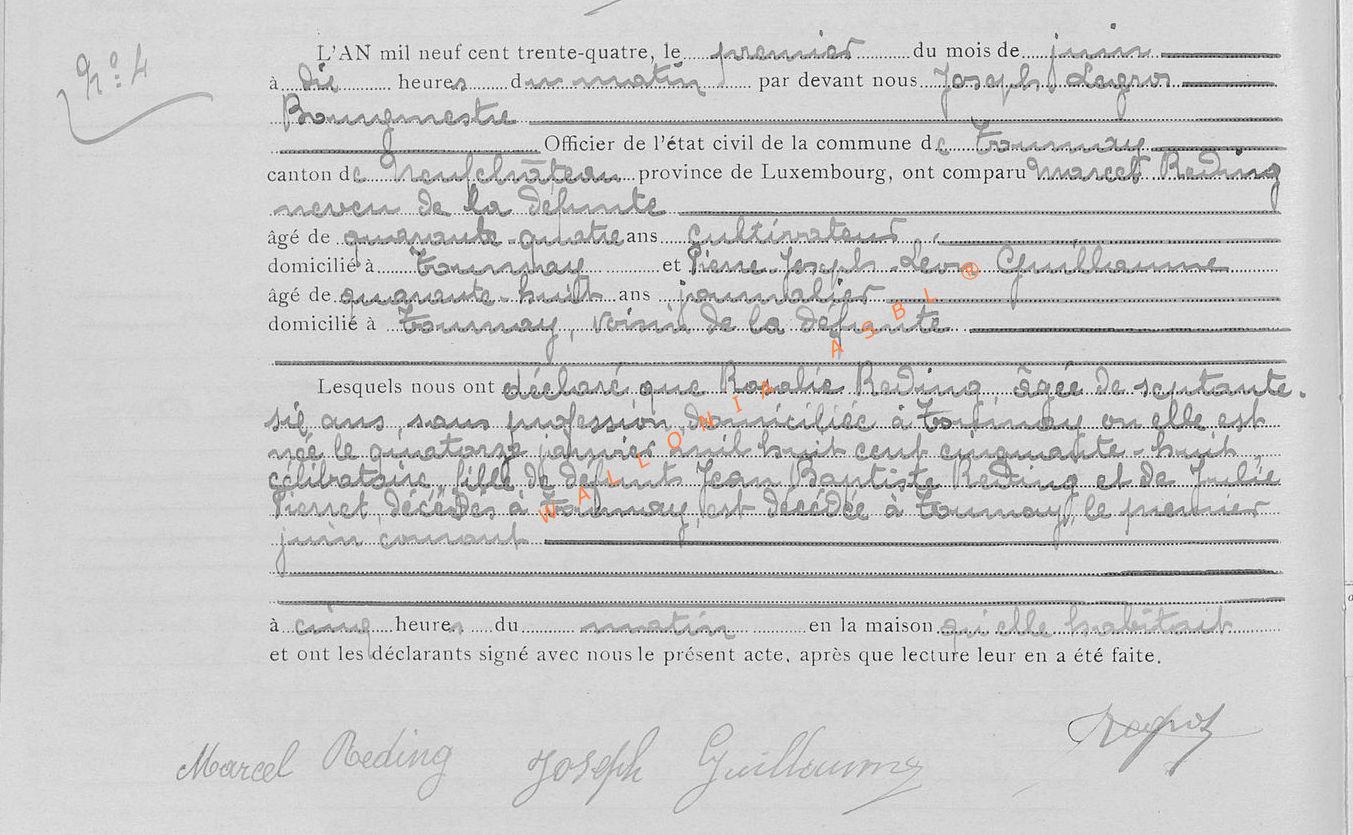 N° 4
L'AN mil neuf cent trente-quatre, le premier du mois de juin
à dix heures du matin par devant nous Joseph Legros
Bourgmestre
Officier de l'état civil de la commune de Tournay
canton de Neufchâteau province de Luxembourg, ont comparu Marcel Reding
neveu de la défunte
âgé de quarante-quatre ans cultivateur
domicilié à Tournay et Pierre Joseph Léon Guillaume
âgé de quarante-huit ans journalier
domicilié à Tournay, voisin de la défunte
Lesquels nous ont déclaré que Rosalie Reding, âgée de septante-
six ans, sans profession, domiciliée à Tournay ou elle est
née le quatorze janvier mil huit cent cinquante-huit,
célibataire, fille de défunts Jean Baptiste Reding et de Julie
Pierret, décédés à Tournay, est décédée à Tournay, le premier
juin courant
à cinq heures du matin en la maison qu'elle habitait
et ont les déclarants signé avec nous le présent acte, après que lecture leur en a été faite.
Marcel Reding Joseph Guillaume Legros
WALLONIA ASBL ®